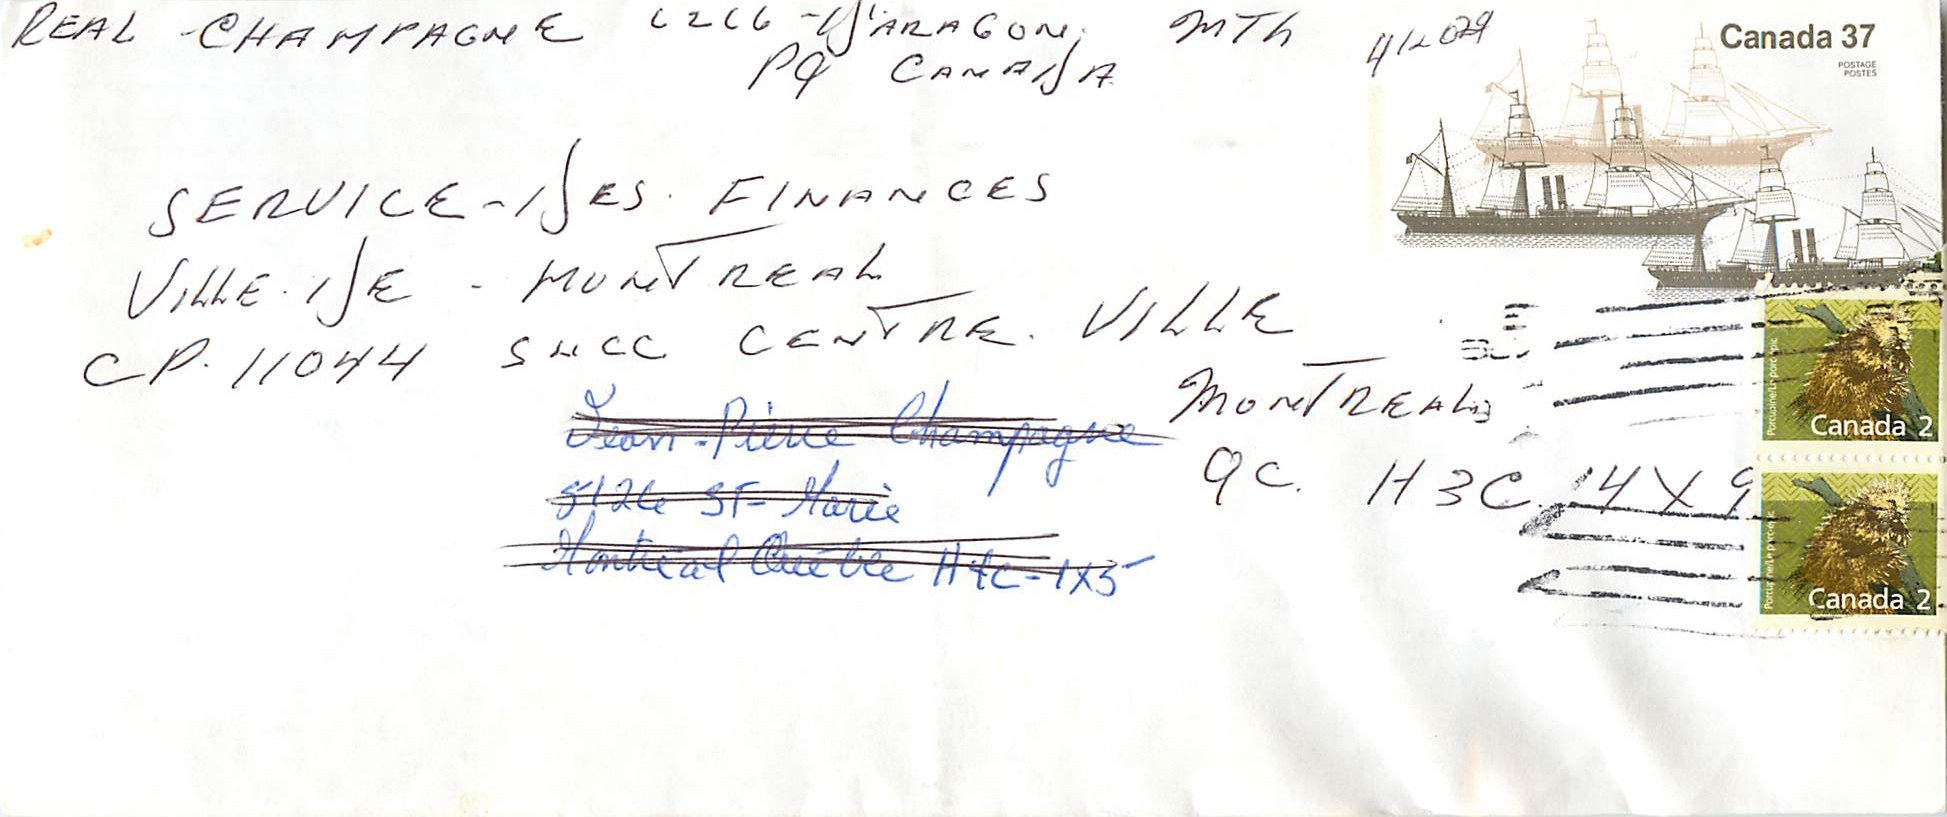 REAL CHAMPAGNE 6266 - D'ARAGON. MTL
PQ CANADA
Canada 37
POSTAGE
POSTES
SERVICE - DES. FINANCES
VILLE. DE - MONTREAL
CP. 11044 SUCC CENTRE. VILLE
MONTREAL
QC. H3C 4X9
Jean-Pierre Champagne
5126 ST-Marie
Montréal Québec H4C-1X5
Porcupine/Le porc-épic
Canada 2
Porcupine/Le porc-épic
Canada 2